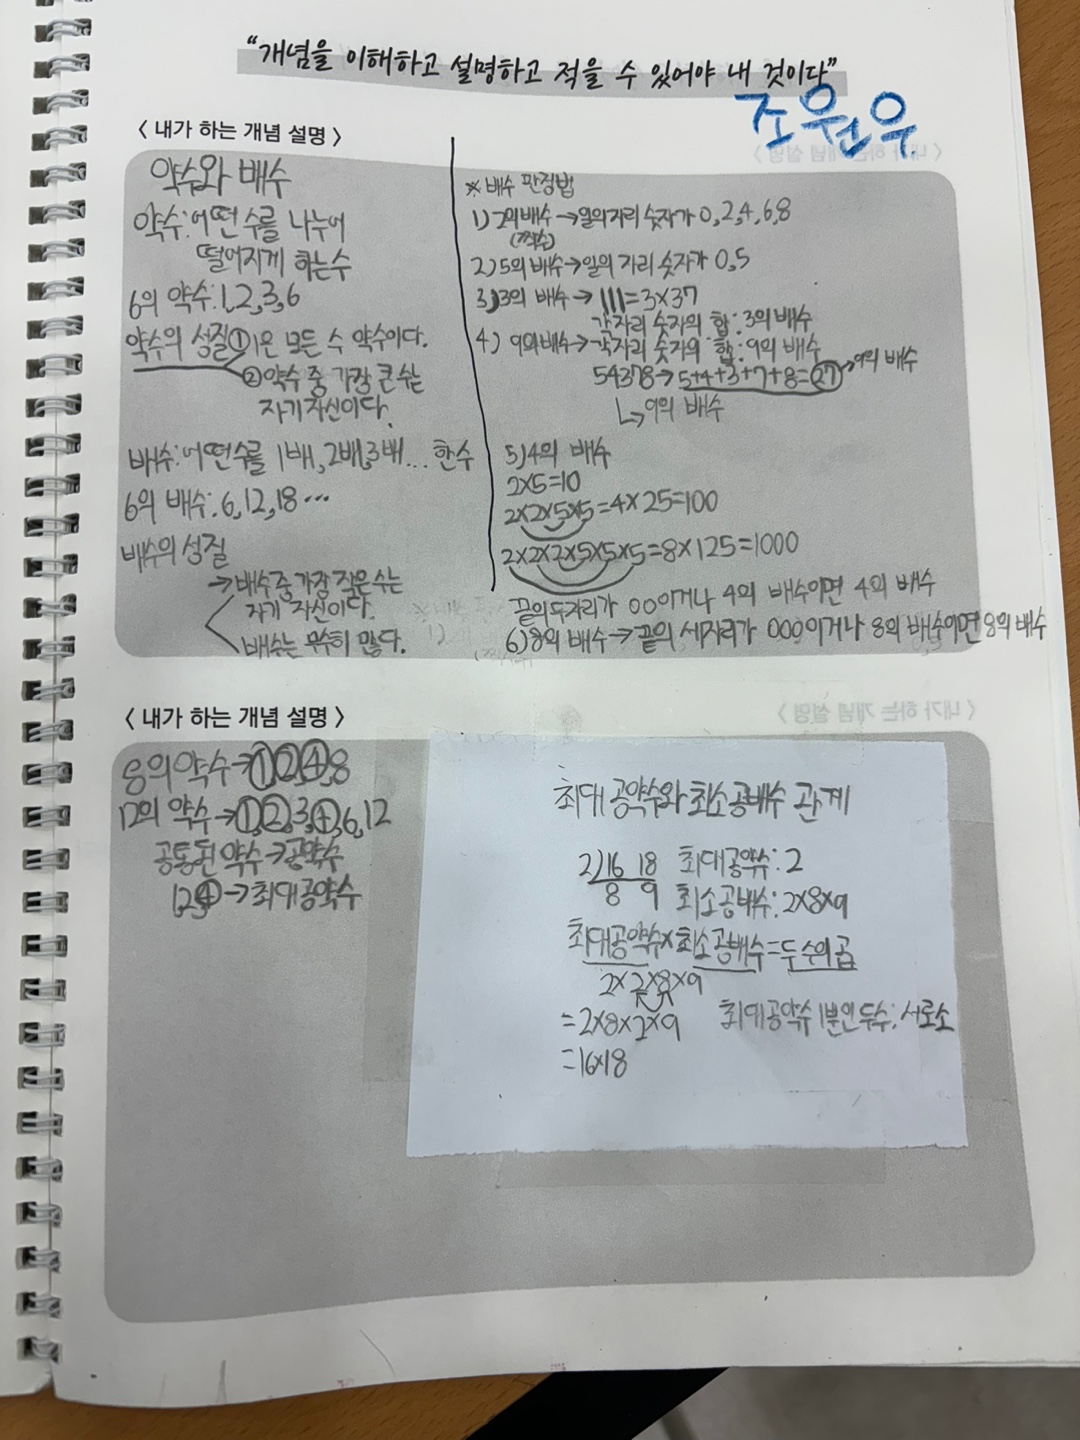 “개념을 이해하고 설명하고 적을 수 있어야 내 것이다”
조원우
< 내가 하는 개념 설명 >
약수와 배수
약수:어떤 수를 나누어
떨어지게 하는수
6의 약수:1,2,3,6
약수의 성질①1은 모든 수 약수이다.
②약수 중 가장 큰수는
자기자신이다.
배수:어떤수를 1배,2배,3배... 한수
6의 배수:6,12,18...
배수의 성질
→배수중가장 작은수는
자기 자신이다.
배수는 무수히 많다.
※배수 판정법
1)2의배수→일의자리 숫자가 0,2,4,6,8
(짝수)
2)5의 배수→일의 자리 숫자가 0,5
3)3의 배수→ 111=3×37
각자리 숫자의 합:3의배수
4) 9의배수→각자리 숫자의 합:9의 배수
54378→5+4+3+7+8=27→9의 배수
↳9의 배수
5)4의 배수
2×5=10
2×2×5×5=4×25=100
2×2×2×5×5×5=8×125=1000
끝의두자리가 00이거나 4의 배수이면 4의 배수
6)8의 배수→끝의 세자리가 000이거나 8의 배수이면8의 배수
< 내가 하는 개념 설명 >
8의약수→①,②,④,8
12의 약수→①,②,3,④,6,12
공통된 약수→공약수
1,2,④→최대공약수
최대 공약수와 최소공배수 관계
2)16 18 최대공약수:2
8 9 최소공배수:2×8×9
최대공약수×최소공배수=두 수의 곱
2×2×8×9
=2×8×2×9 최대공약수 1뿐인 두수:서로소
=16×18